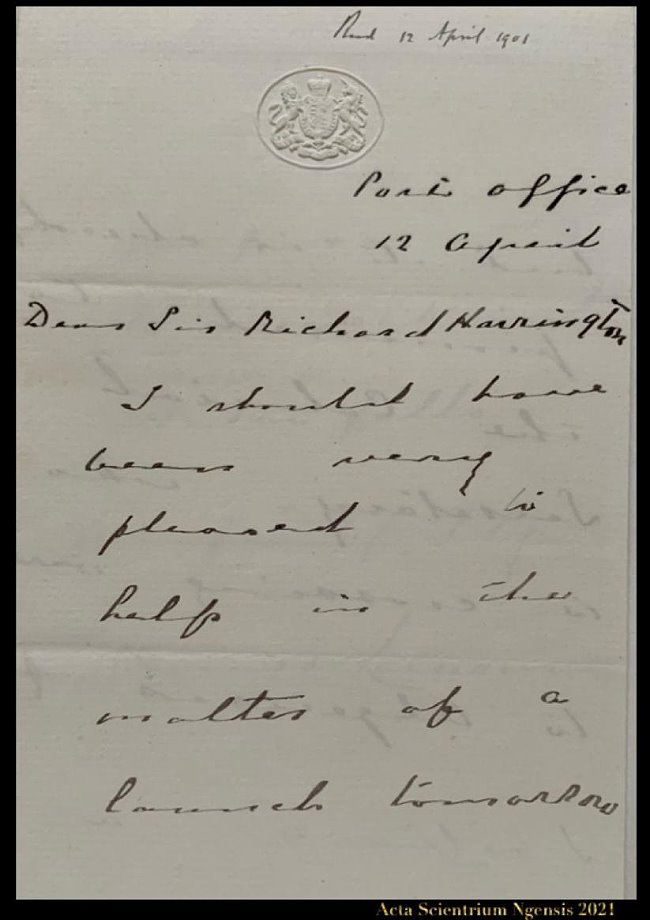 Recd 12 April 1901
Post office
12 April
Dear Sir Richard Harrington
I should have
been very
pleased to
help in the
matter of a
launch tomorrow
Acta Scientrium Ngensis 2021